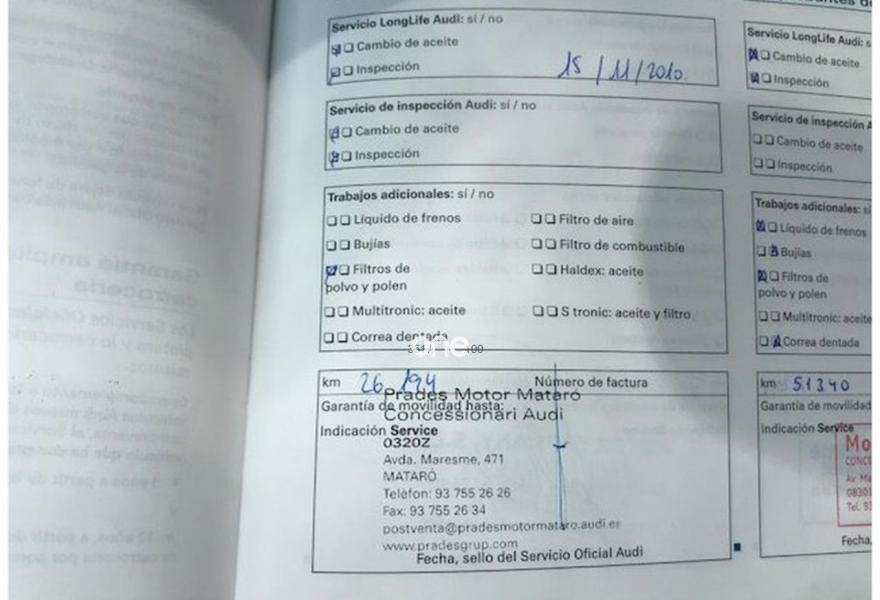 Servicio LongLife Audi: sí / no
Cambio de aceite
Inspección
15/11/2010.
Servicio de inspección Audi: sí / no
Cambio de aceite
Inspección
Trabajos adicionales: sí / no
Líquido de frenos
Filtro de aire
Bujías
Filtro de combustible
Filtros de
polvo y polen
Haldex: aceite
Multitronic: aceite
S tronic: aceite y filtro
Correa dentada
one
km 26.194
Número de factura
Garantía de movilidad hasta:
Indicación Service
Prades Motor Mataró
Concessionari Audi
0320Z
Avda. Maresme, 471
MATARÓ
Teléfon: 93 755 26 26
Fax: 93 755 26 34
postventa@pradesmotormataro.audi.es
www.pradesgrup.com
Fecha, sello del Servicio Oficial Audi
Servicio LongLife Audi:
Cambio de aceite
Inspección
Servicio de inspección
Cambio de aceite
Inspección
Trabajos adicionales:
Líquido de frenos
Bujías
Filtros de
polvo y polen
Multitronic: aceite
Correa dentada
km 51340
Garantía de movilidad
Indicación Service
Mo
CONCE
Av. Ma
08301
Tel. 93
Fecha,